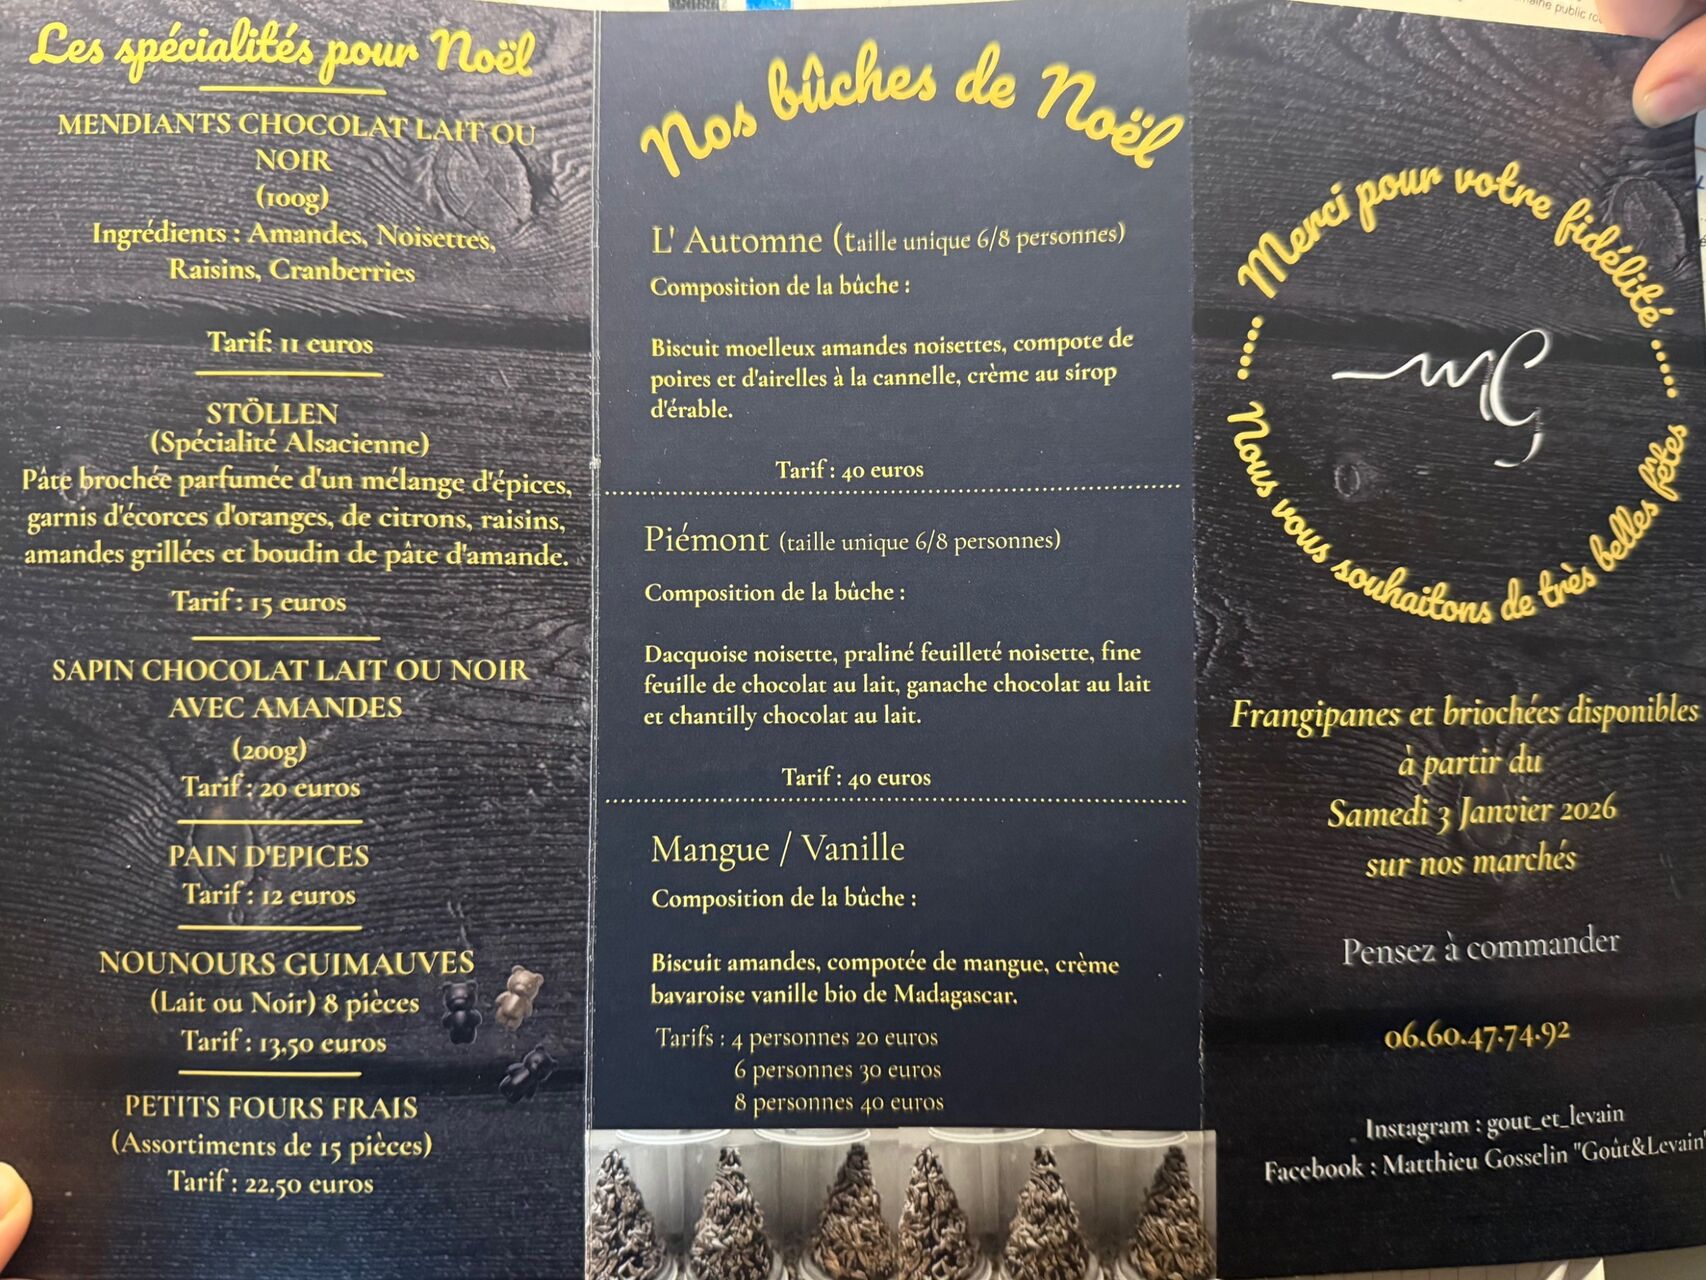 Les spécialités pour Noël
MENDIANTS CHOCOLAT LAIT OU
NOIR
(100g)
Ingrédients : Amandes, Noisettes,
Raisins, Cranberries
Tarif: 11 euros
STÖLLEN
(Spécialité Alsacienne)
Pâte brochée parfumée d'un mélange d'épices,
garnis d'écorces d'oranges, de citrons, raisins,
amandes grillées et boudin de pâte d'amande.
Tarif : 15 euros
SAPIN CHOCOLAT LAIT OU NOIR
AVEC AMANDES
(200g)
Tarif : 20 euros
PAIN D'EPICES
Tarif : 12 euros
NOUNOURS GUIMAUVES
(Lait ou Noir) 8 pièces
Tarif : 13,50 euros
PETITS FOURS FRAIS
(Assortiments de 15 pièces)
Tarif : 22.50 euros
Nos bûches de Noël
L' Automne (taille unique 6/8 personnes)
Composition de la bûche :
Biscuit moelleux amandes noisettes, compote de
poires et d'airelles à la cannelle, crème au sirop
d'érable.
Tarif : 40 euros
Piémont (taille unique 6/8 personnes)
Composition de la bûche :
Dacquoise noisette, praliné feuilleté noisette, fine
feuille de chocolat au lait, ganache chocolat au lait
et chantilly chocolat au lait.
Tarif : 40 euros
Mangue / Vanille
Composition de la bûche :
Biscuit amandes, compotée de mangue, crème
bavaroise vanille bio de Madagascar.
Tarifs : 4 personnes 20 euros
6 personnes 30 euros
8 personnes 40 euros
Merci pour votre fidélité
MG
Nous vous souhaitons de très belles fêtes
Frangipanes et briochées disponibles
à partir du
Samedi 3 Janvier 2026
sur nos marchés
Pensez à commander
06.60.47.74.92
Instagram : gout_et_levain
Facebook : Matthieu Gosselin "Goût&Levain"